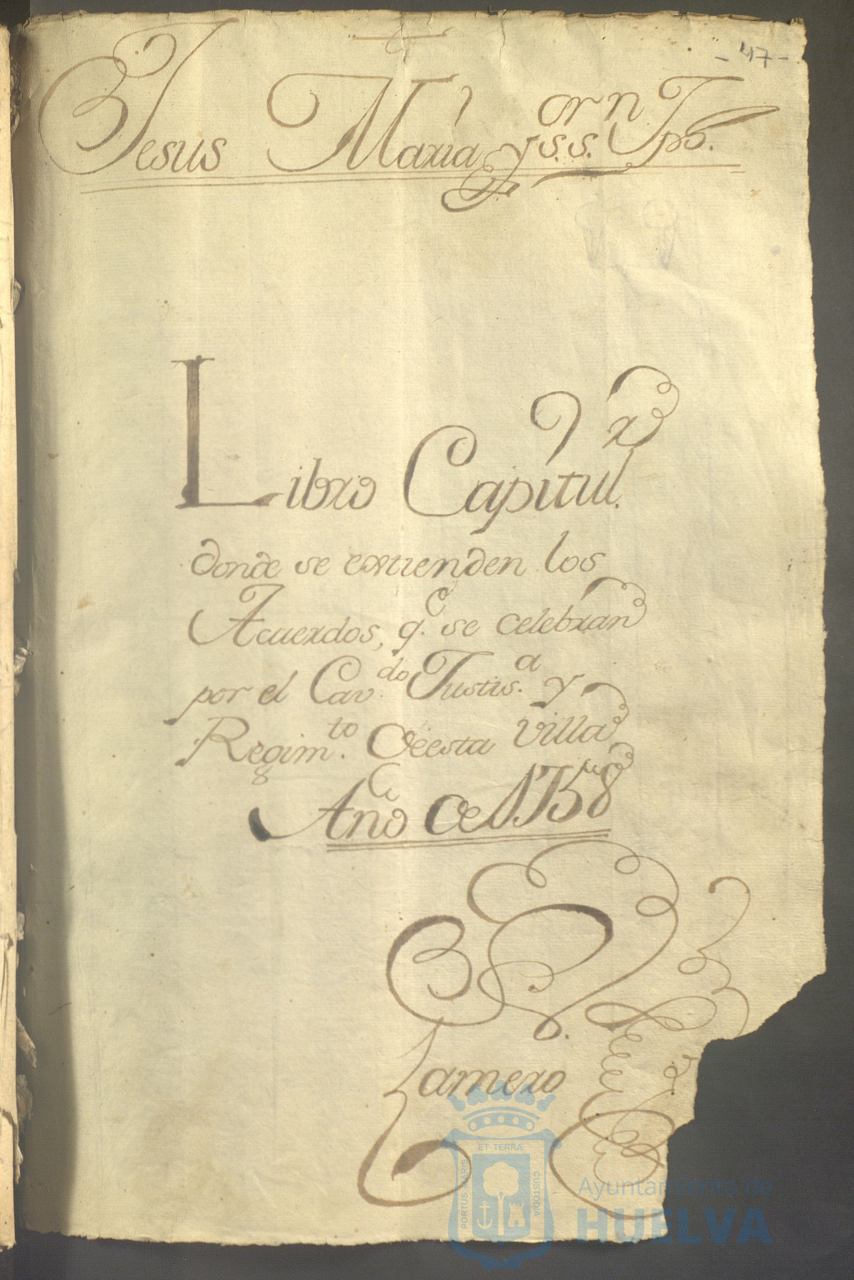 -47-
Jesus Maria y S.S.r Jph.n
Libro Capitul.r
donde se extienden los
Acuerdos, q.e se celebran
por el Cav.do Justis.a y
Regim.to de esta Villa
Año de 1758
Zamero
ET TERRÆ
PORTUS MARIS
CUSTODIA
Ayuntamiento de
HUELVA